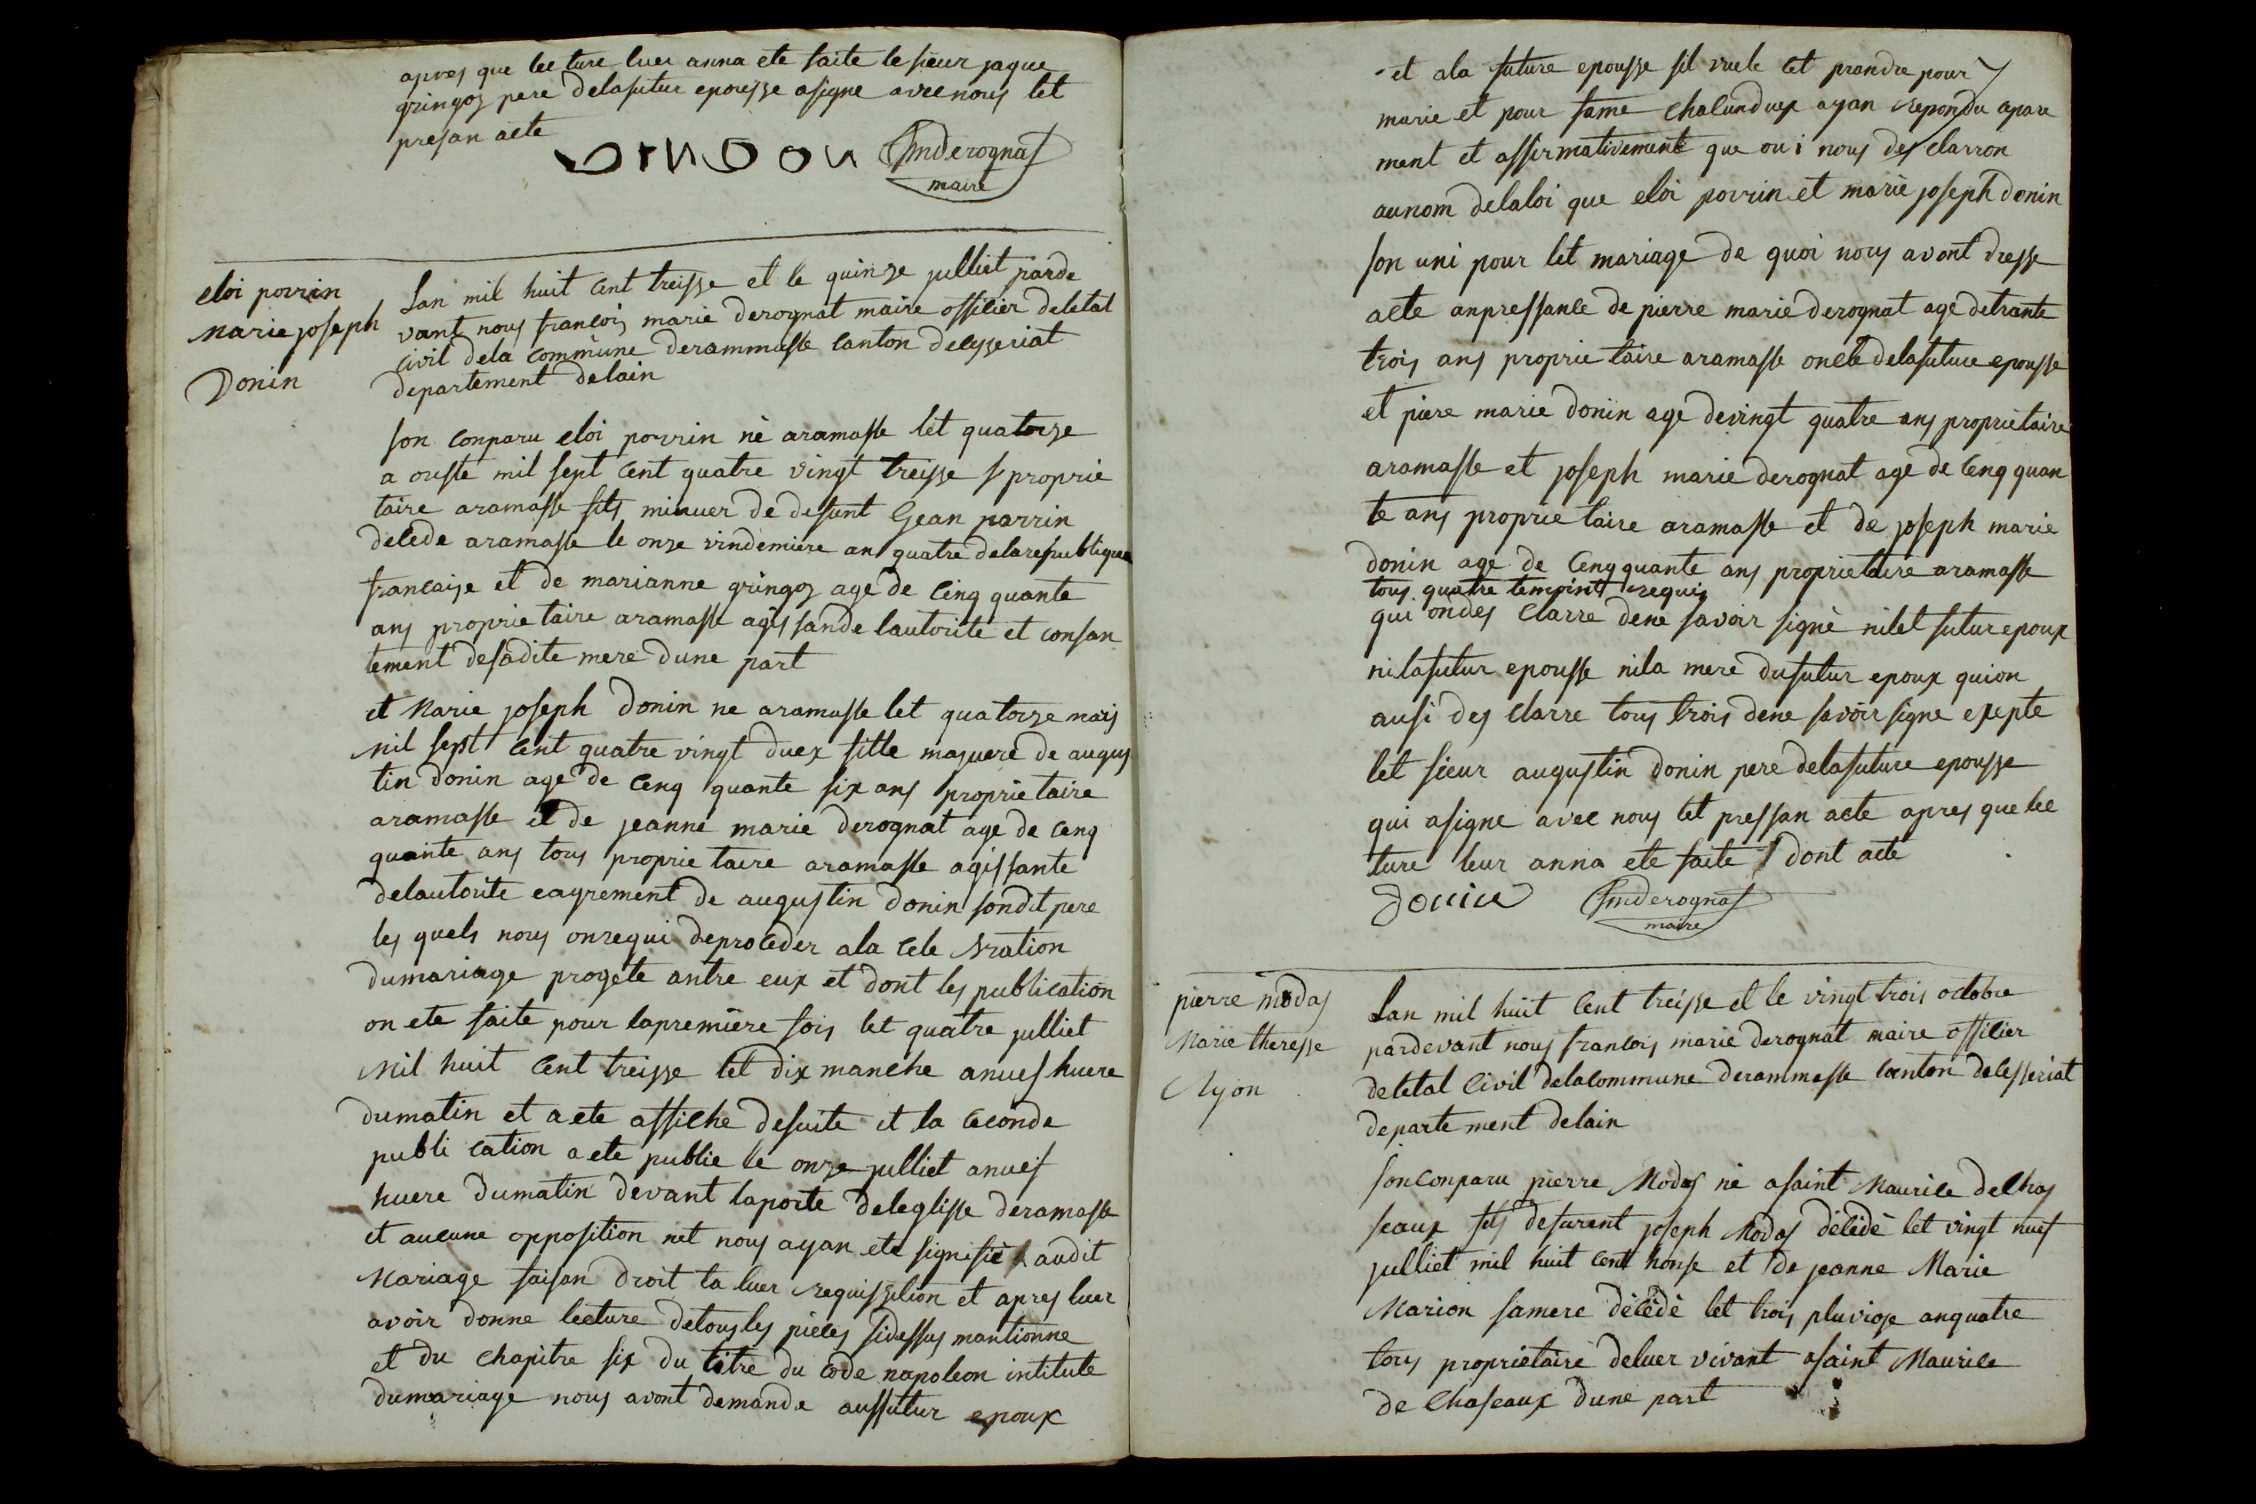 apres que lecture luer anna ete faite le sieur jaque
gringoz pere delafutur epousse asigne avec nous let
presan acte
GINGON fmderognat
maire
eloi povrin
Marie joseph
Donin
Lan mil huit cent treisse et le quinze julliet parde
vant nous francois marie derognat maire officier deletat
civil dela commune derammasse canton deceyseriat
departement delain
son conparu eloi povrin né aramasse let quatorze
a ouste mil sept cent quatre vingt treisse proprie
taire aramasse fils minuer de defunt Gean parrin
decede aramasse le onze vindemiere an quatre delarepublique
francaise et de marianne gringoz age de cinq quante
ans proprietaire aramasse agissande lautorite et consan
tement desadite mere dune part
et Marie joseph Donin ne aramasse let quatorze mars
Mil sept cent quatre vingt duex fille majuere de augus
tin donin age de cenq quante six ans proprietaire
aramasse et de jeanne marie derognat age de cenq
quante ans tous proprie taire aramasse agissante
delautorite eagrement de augustin Donin sondit pere
les quels nous onrequi deproceder ala cele bration
dumariage progete antre eux et dont les publication
on ete faite pour lapremiere fois let quatre julliet
Mil huit cent treisse let dix manche anuef huere
dumatin et a ete affiche desuite et la ceconde
publi cation a ete publie le onze julliet anuef
huere dumatin devant laporte deleglisse deramasse
et aucune opposition net nous ayan ete signifié audit
Mariage faisan droit ta luer requissition et apres luer
avoir donne lecture detous les pieces sidessus mantionne
et du chapitre six du titre du code napoleon intitule
dumariage nous avont demande aussutur epoux
et ala future epousse sil vuele cet prandre pour
marie et pour fame chalunduex ayan repondu apare
ment et affirmativement que oui nous des clarron
aunom delaloi que eloi povrin et marie joseph donin
son uni pour let mariage de quoi nous avont dresse
acte anpressance de pierre marie derognat age detrante
trois ans proprie taire aramasse oncle delafuture epousse
et piere marie donin age devingt quatre ans proprietaire
aramasse et joseph marie derognat age de cenq quan
te ans proprie taire aramasse et de joseph marie
donin age de cenq quante ans proprietaire aramasse
tous quatre temoint requis
qui ondes clarre dene savoir signé nilet futur epoux
nilafutur epousse nila mere dufutur epoux quion
ausi des clarre tous trois dene savoir signe exepte
let sieur augustin donin pere delafuture epousse
qui asigne avec nous let pressan acte apres que lec
ture leur anna ete faite dont acte
Donin fmderognat
maire
pierre modas
Marie theresse
Clyon
Lan mil huit cent treisse et le vingt trois octobre
pardevant nous francois marie derognat maire officier
deletat Civil delacommune derammasse canton deceseriat
departe ment delain
sonconparu pierre Modas né asaint Maurice dechas
seaux fils defunent joseph Modas décédé let vingt nuef
julliet mil huit cent honse et de jeanne Marie
Marion samere décédé let trois pluviose anquatre
tous proprietaire deluer vivant asaint Maurice
de Chaseaux dune part